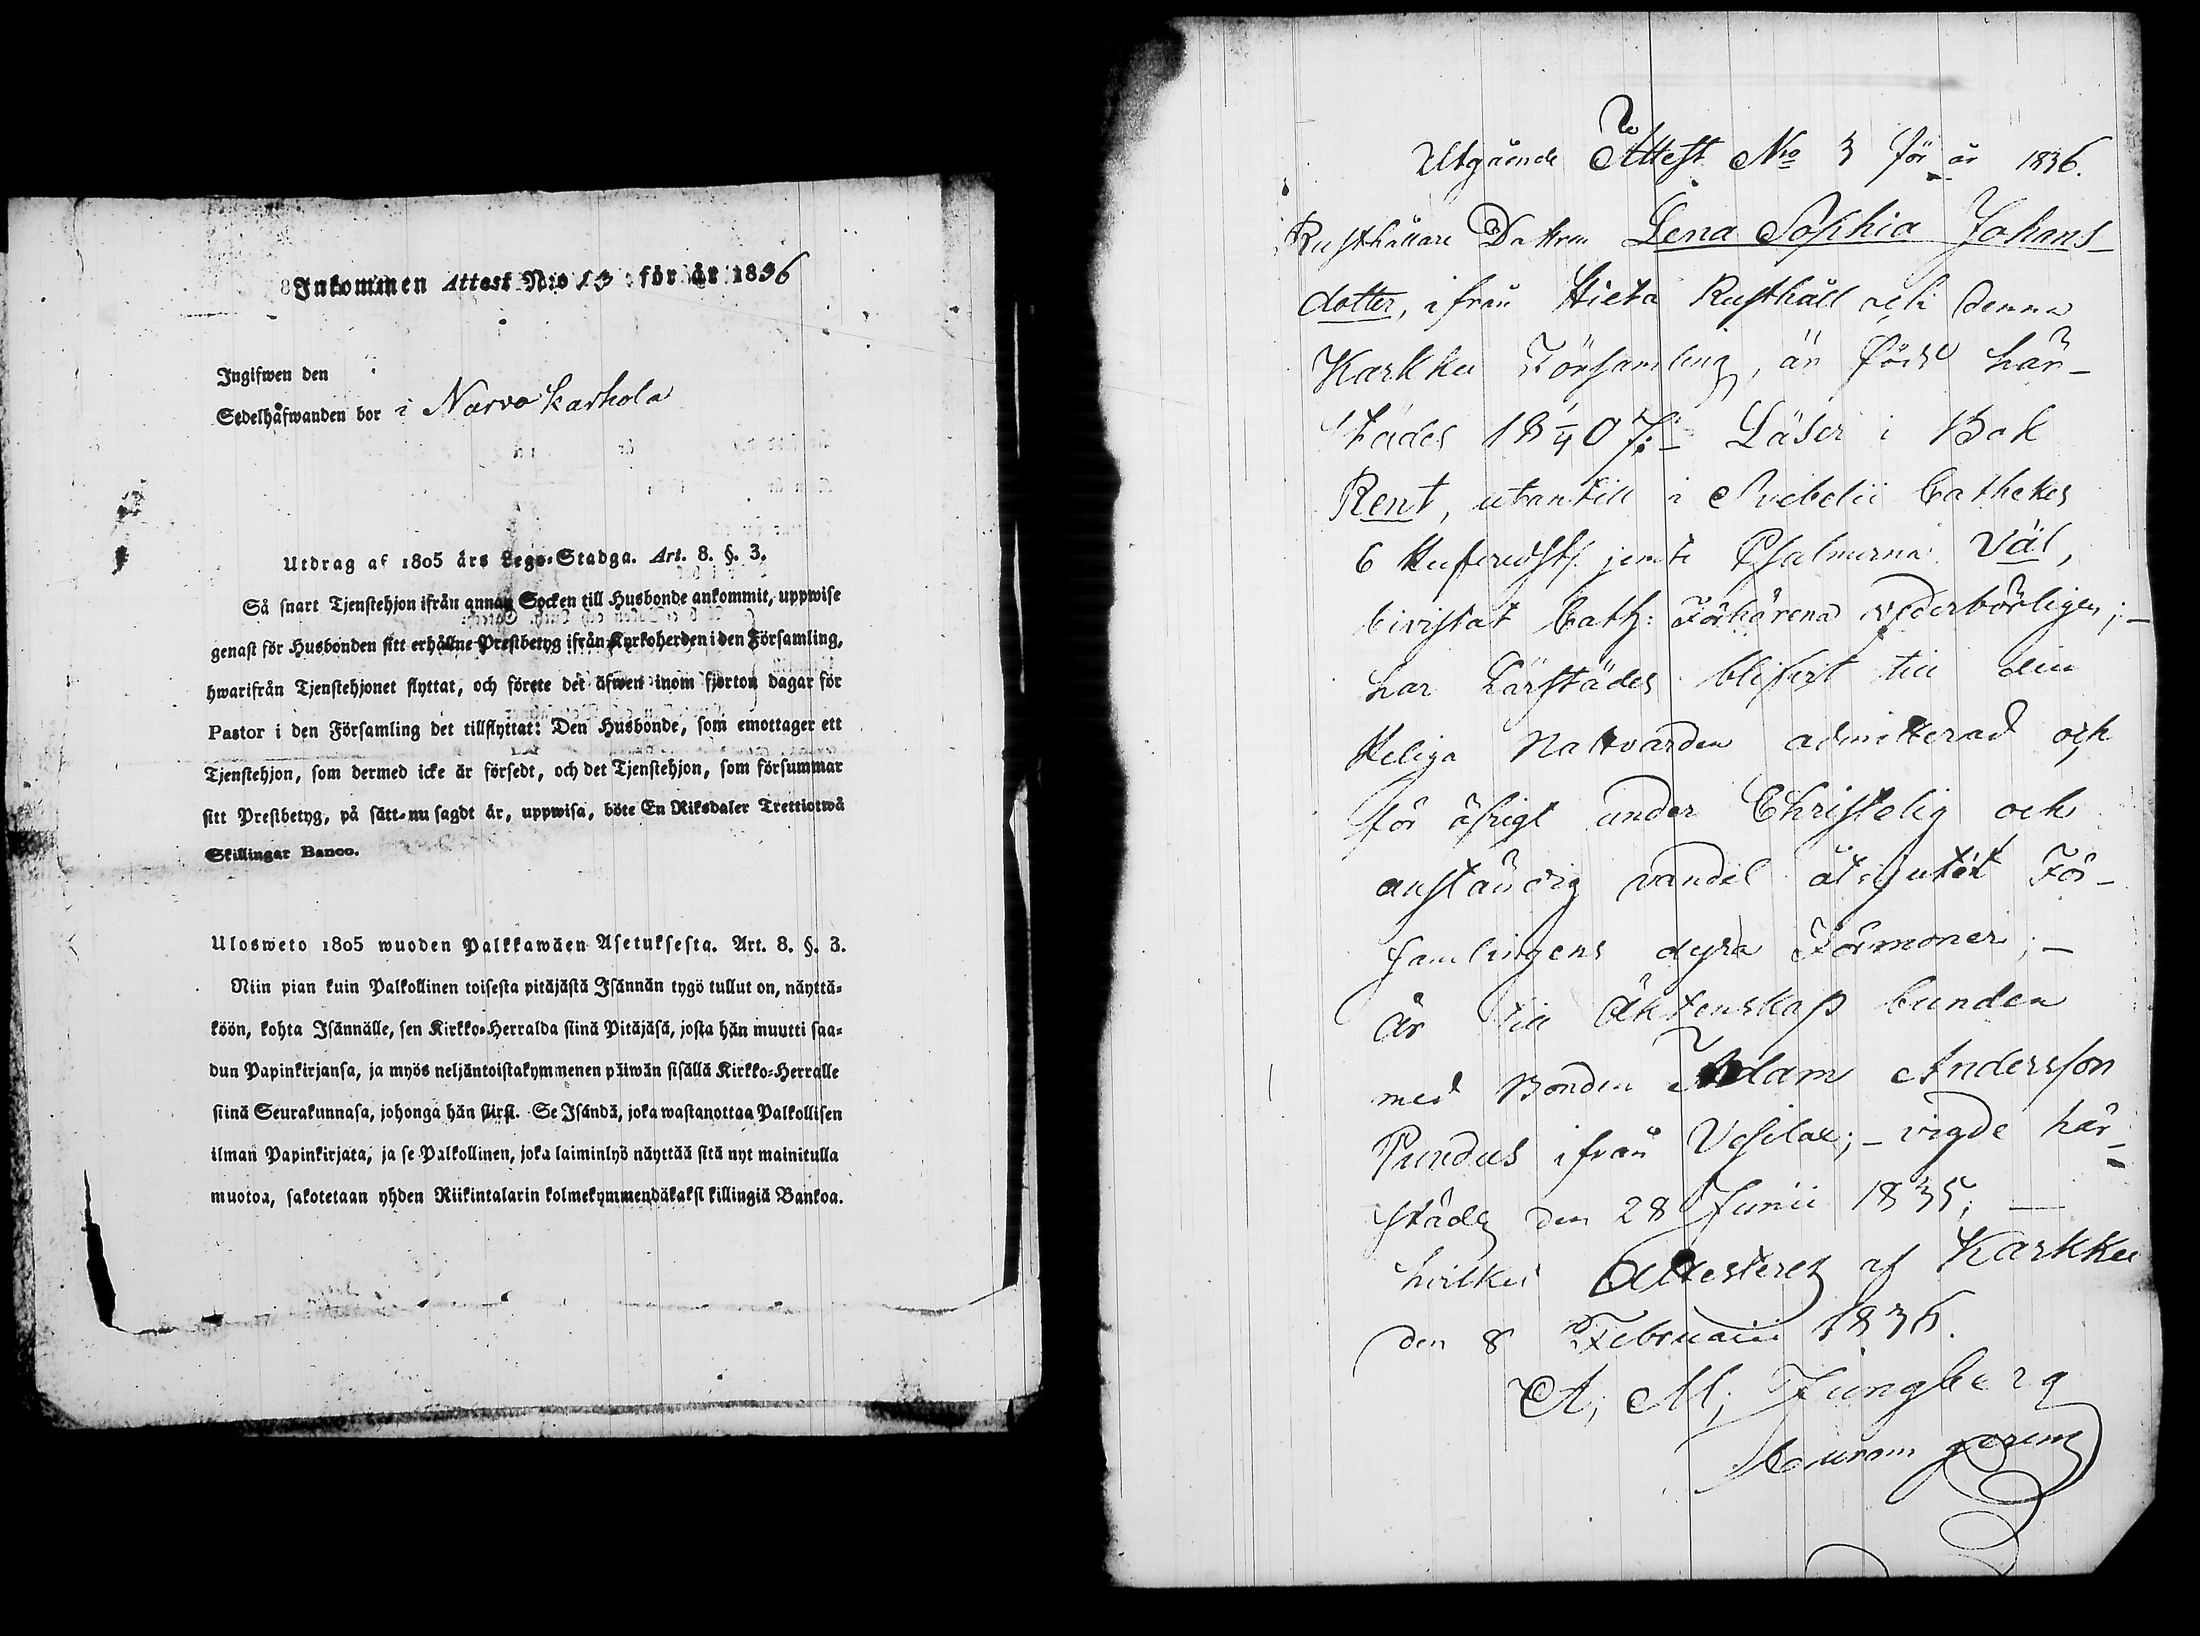 Inkommen Attest N:o 13 för år 1836
Ingifwen den
Sedelhafwanden bor i Narva Karhola
Utdrag af 1805 års Lego-Stadga. Art. 8. §. 3.
Så snart Tjenstehjon ifrån annan Socken till Husbonde ankommit, uppwise
genast för Husbonden sitt erhållne Prestbetyg ifrån Kyrkoherden i den Församling,
hwarifrån Tjenstehjonet flyttat, och förete det äfwen inom fjorton dagar för
Pastor i den Församling det tillflyttat: Den Husbonde, som emottager ett
Tjenstehjon, som dermed icke är försedt, och det Tjenstehjon, som försummar
sitt Prestbetyg, på sätt-nu sagdt är, uppwisa, böte En Riksdaler Trettiotwå
Skillingar Banco.
Ulosweto 1805 wuoden Palkkawäen Asetuksesta. Art. 8. §. 3.
Niin pian kuin Palkollinen toisesta pitäjästä Isännän tygö tullut on, näyttä-
köön, kohta Isännälle, sen Kirkko-Herralda siinä Pitäjäsä, josta hän muutti saa-
dun Papinkirjansa, ja myös neljäntoistakymmenen päiwän sisällä Kirkko-Herralle
siinä Seurakunnasa, johonga hän siirst. Se Isändä, joka wastanottaa Palkollisen
ilman Papinkirjata, ja se Palkollinen, joka laiminlyö näyttää sitä nyt mainitulla
muotoa, sakotetaan yhden Riikintalarin kolmekymmendäkaksi killingiä Bankoa.
Utgående Attest No 3 för år 1836.
Rusthållare Dottren Lena Sophia Johans-
dotter, ifrån Hieta Rusthåll och denna
Karkku Församling, är född här-
städes 18 1/4 07:- Läser i Bok
Rent, utantill i Svebelii Cathekes
6 Hufvudst. jemte Psalmerna Väl,
bivistat Cath: Förhören vederbörligen;-
har härstädes blifvit till den
Heliga Nattvarden admitterad och
för öfrigt under Christelig och
anständig vandel åtnjutit För-
samlingens dyra Förmoner;-
är till äktenskap bunden
med Bonden Adam Andersson
Pundus ifrån Vesilax;- vigde här-
städes den 28 Junii 1835;-
hvilket Attesteres af Karkku
den 8 Februarii 1836.
A. M. Ljungberg